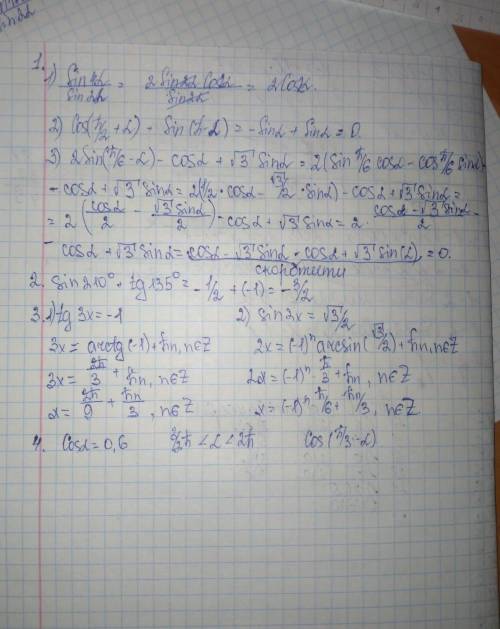 1.
1) sin4α/sin2α = 2 sin2α cos2α/sin2α = 2cos2α.
2) cos(π/2 + α) + sin(π-α) = -sinα + sinα = 0.
3) 2sin(π/6 - α) - cosα + √3 sinα = 2(sin π/6 cosα - cos π/6 sinα) -
- cosα + √3 sinα = 2(1/2 · cosα - √3/2 · sinα) - cosα + √3 sinα =
= 2(cosα/2 - √3 sinα/2) - cosα + √3 sinα = 2 · cosα - √3 sinα/2 -
- cosα + √3 sinα = cosα - √3 sinα - cosα + √3 sin(α) = 0.
скоротити
2. sin210° + tg135° = -1/2 + (-1) = -3/2
3. 1) tg3x = -1 2) sin2x = √3/2
3x = arctg(-1) + πn, n∈Z 2x = (-1)ⁿ arcsin(√3/2) + πn, n∈Z
3x = 2π/3 + πn, n∈Z 2x = (-1)ⁿ · π/3 + πn, n∈Z
x = 2π/9 + πn/3, n∈Z x = (-1)ⁿ · π/6 + πn/3, n∈Z
4. cosα = 0,6 3/2π < α < 2π cos(π/3 - α)